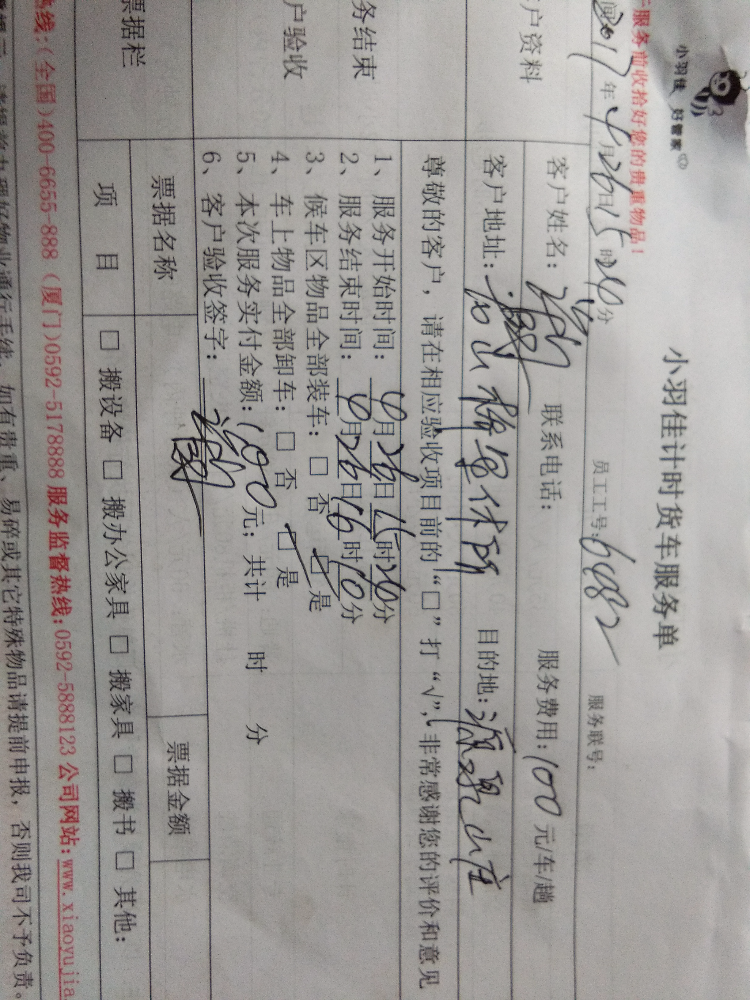 小羽佳 好管家
服务前收拾好您的贵重物品!
小羽佳计时货车服务单
2017年4月26日15时20分 员工工号:6482 服务联号:
户资料
客户姓名: 联系电话: 服务费用:100元/车/趟
客户地址: 目的地:
务结束
户验收
尊敬的客户,请在相应验收项目前的“□”打“√”,非常感谢您的评价和意见
1、服务开始时间:4月26日15时20分
2、服务结束时间:4月26日16时10分
3、候车区物品全部装车:□ 否 □ 是
4、车上物品全部卸车:□ 否 □ 是
5、本次服务实付金额:100元;共计 时 分
6、客户验收签字:
票据栏
票据名称 票据金额
项 目 □ 搬设备 □ 搬办公家具 □ 搬家具 □ 搬书 □ 其他:
热线:(全国)400-6655-888 (厦门)0592-5178888 服务监督热线:0592-5888123 公司网站:www.xiaoyujia.
请提前办理好物业通行手续,如有贵重、易碎或其它特殊物品请提前申报,否则我司不予负责。